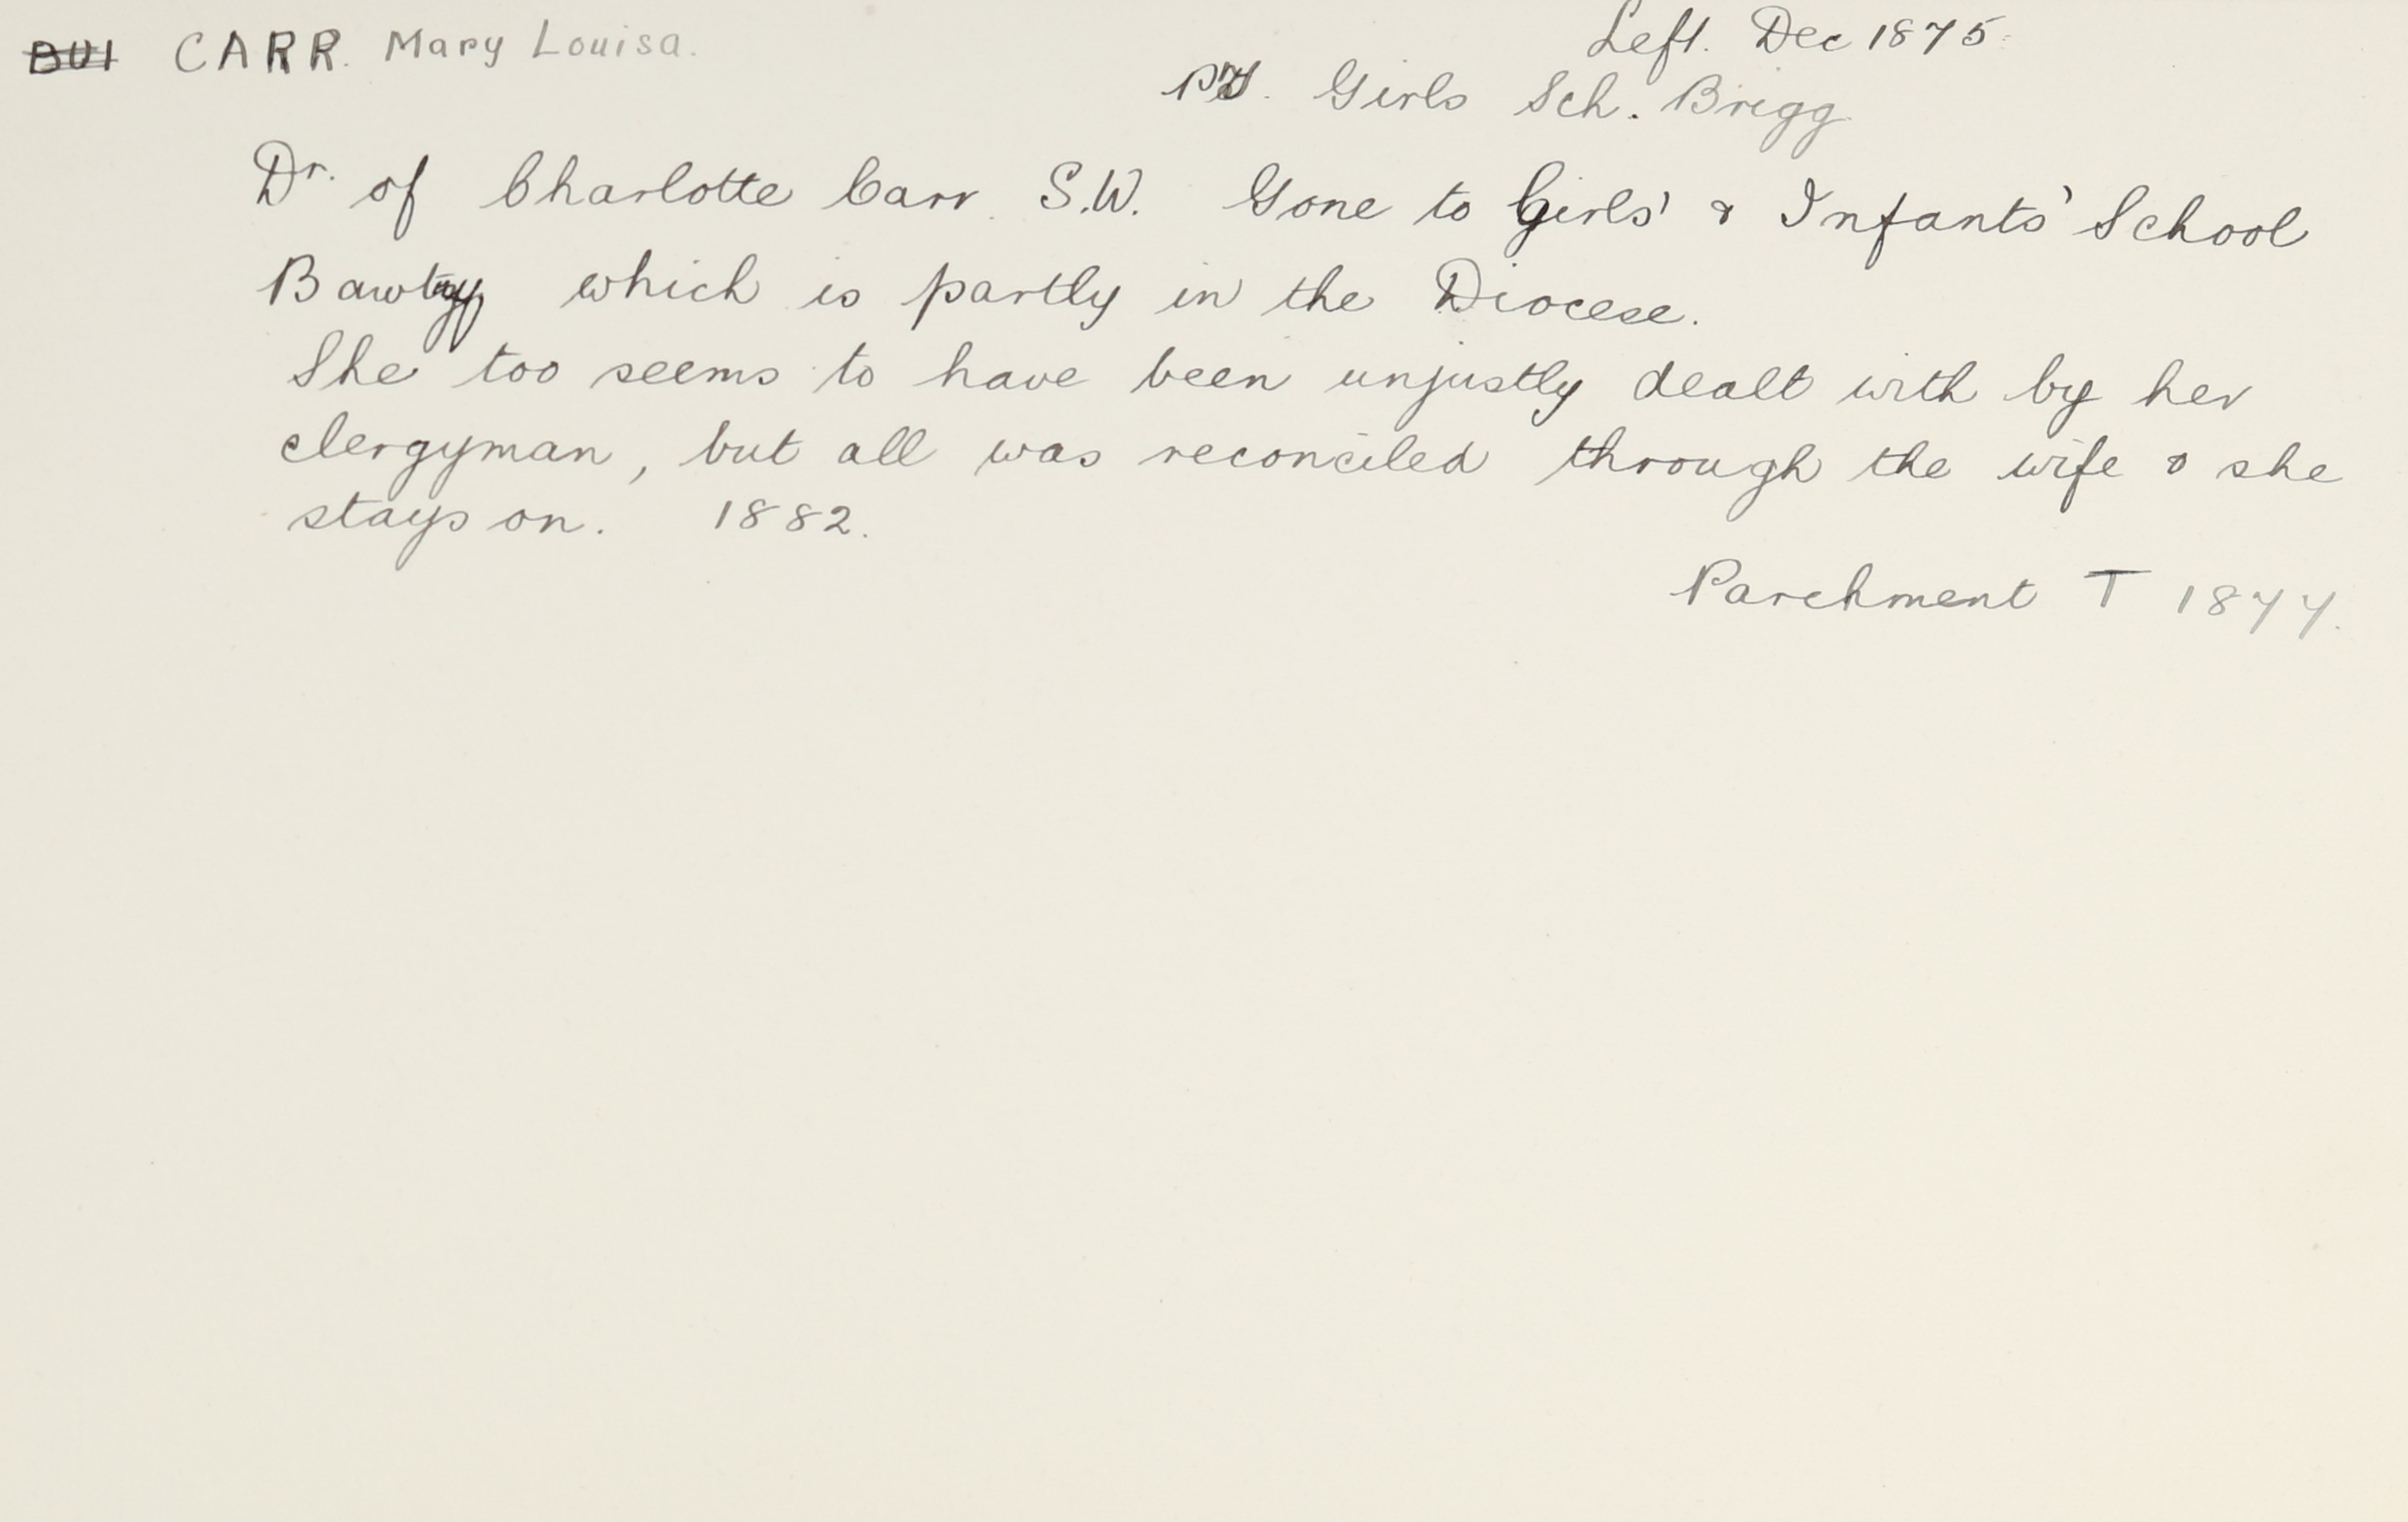 BUI CARR. Mary Louisa.
Left. Dec 1875.
PT. Girls Sch. Brigg.
Dr. of Charlotte Carr. S.W. Gone to Girls' & Infants' School
Bawtry which is partly in the Diocese.
She too seems to have been unjustly dealt with by her
clergyman, but all was reconciled through the wife & she
stays on. 1882.
Parchment T 1877.